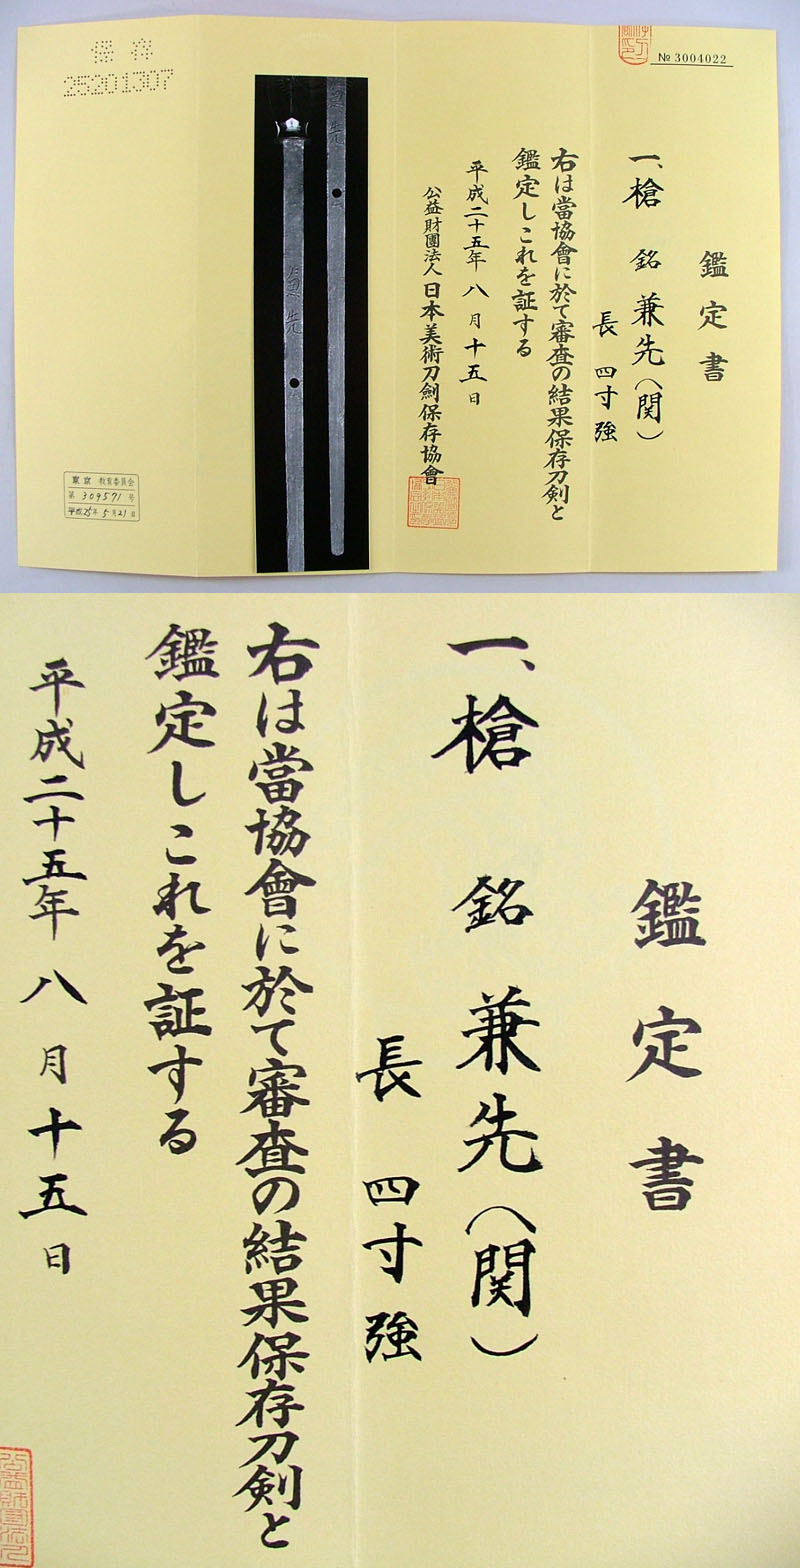 № 3004022
鑑定書
一、槍 銘 兼先(関)
長 四寸強
右は當協會に於て審査の結果保存刀剣と
鑑定しこれを証する
平成二十五年八月十五日
公益財團法人日本美術刀劍保存協會
兼先
兼先
保存
25201307
東京 教育委員会
第 309571 号
平成25年5月21日
鑑定書
一、槍 銘 兼先(関)
長 四寸強
右は當協會に於て審査の結果保存刀剣と
鑑定しこれを証する
平成二十五年八月十五日